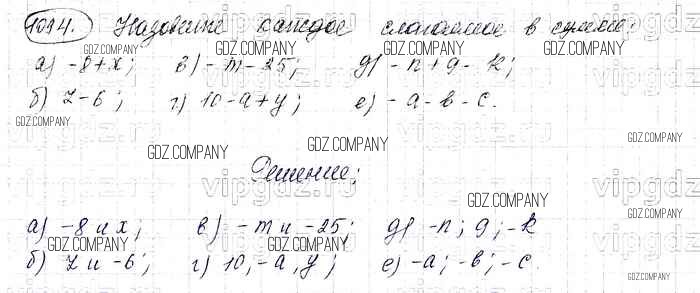 1094. Назовите каждое слагаемое в сумме:
GDZ.COMPANY GDZ.COMPANY GDZ.COMPANY
а) -8+x; в) -m-25; д) -n+9-k;
vipgdz.ru vipgdz.ru vipgdz
б) 7-6; г) 10-a+y; е) -a-b-c.
GDZ.COMPANY
GDZ.COMPANY GDZ.COMPANY
Решение;
vipgdz.ru vipgdz.ru vipgdz
GDZ.COMPANY
а) -8 и x; в) -m и -25; д) -n; 9; -k
GDZ.COMPANY GDZ.COMPANY GDZ.COMPANY
б) 7 и -6; г) 10, -a, y; е) -a; -b; -c.
vipgdz.ru vipgdz.ru vipgdz